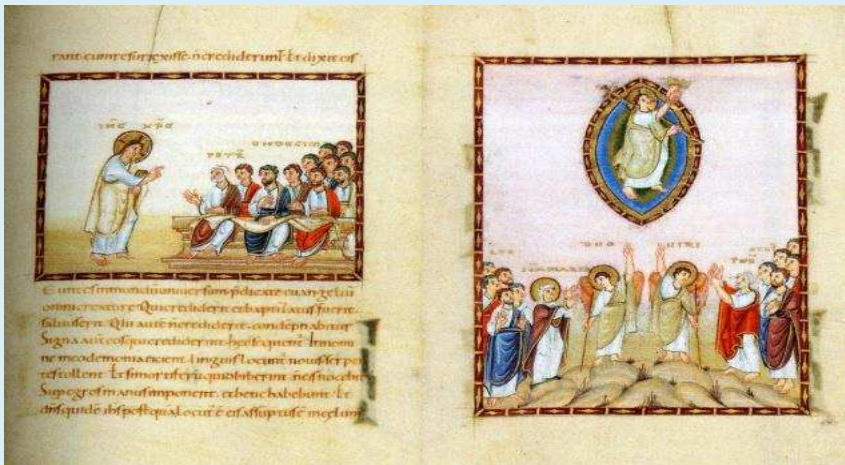 rant eum resurrexisse n̄ crediderunt. Et dixit eis
IHC XPC
UNDECIM
PETR̄
Euntes in mundū universum. p̄dicate euangeliū
omni creature. Qui crediderit et baptizatus fuerit.
salvus erit. Qui autē n̄ crediderit. condēpnabitur
Signa autē eos qui crediderint. hec sequent. In nomi
ne meo demonia eicient. Linguis loquent novis. Serpen
tes tollent. Et si mortiferū quid biberint. n̄ eis nocebit
Sup egros manus imponent. et bene habebunt. Et
dn̄s quidē ih̄s postquā locut ē eis assūptus ē in celum
DUO UIRI
SCA MARIA